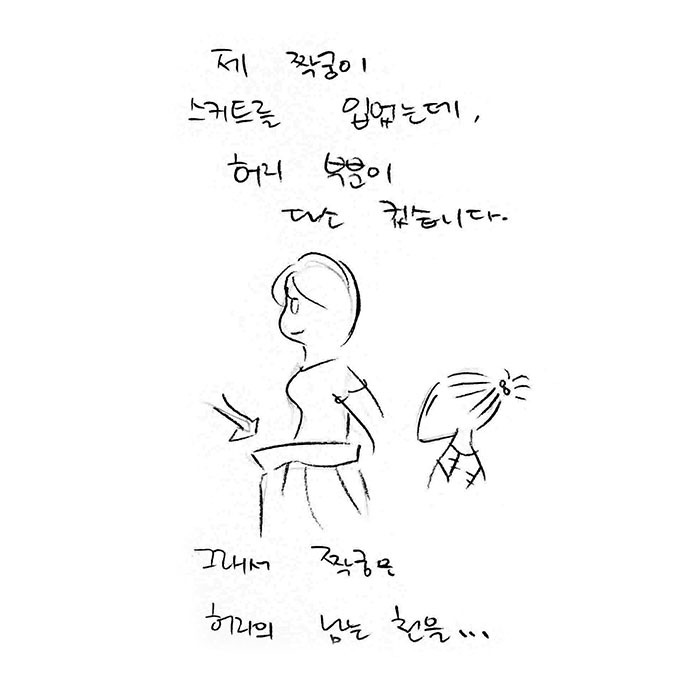 제 짝궁이
스커트를 입었는데,
허리 부분이
다소 컸습니다.
그래서 짝궁은
허리의 남는 천을...